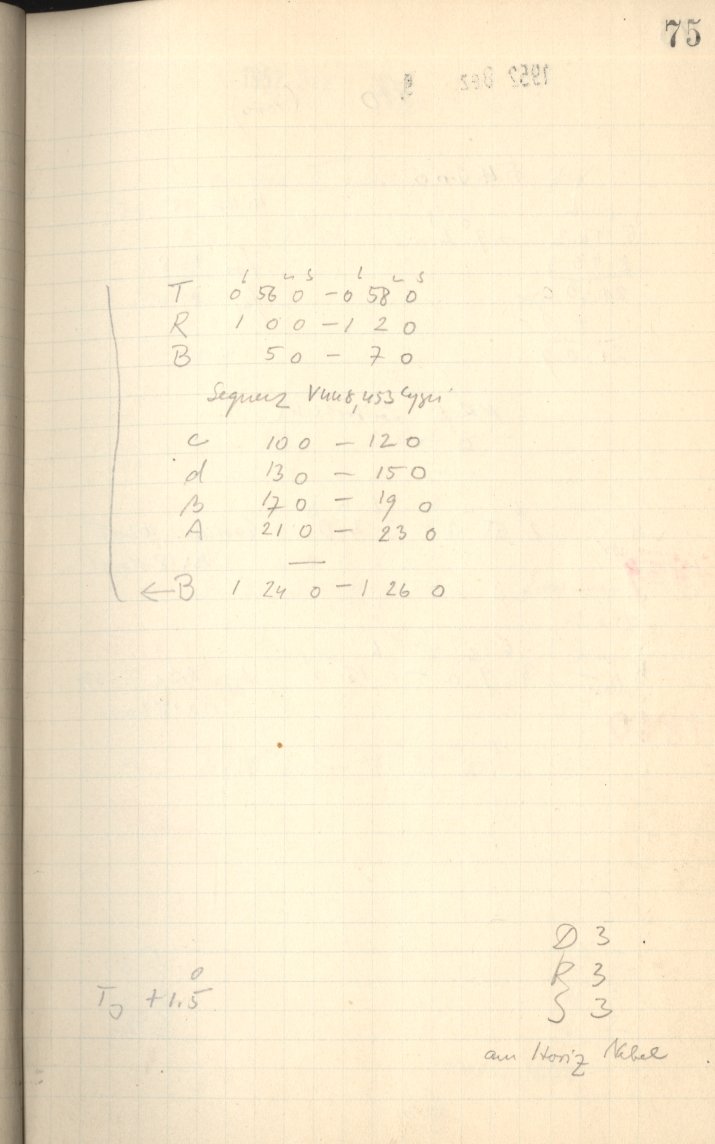 75
h m s h m s
T 0 56 0 – 0 58 0
R 1 0 0 – 1 2 0
B 5 0 – 7 0
Sequenz V448,453 Cygni
C 10 0 – 12 0
d 13 0 – 15 0
β 17 0 – 19 0
A 21 0 – 23 0
← B 1 24 0 – 1 26 0
D 3
R 3
S 3
T +1.5°
am Horiz Nebel